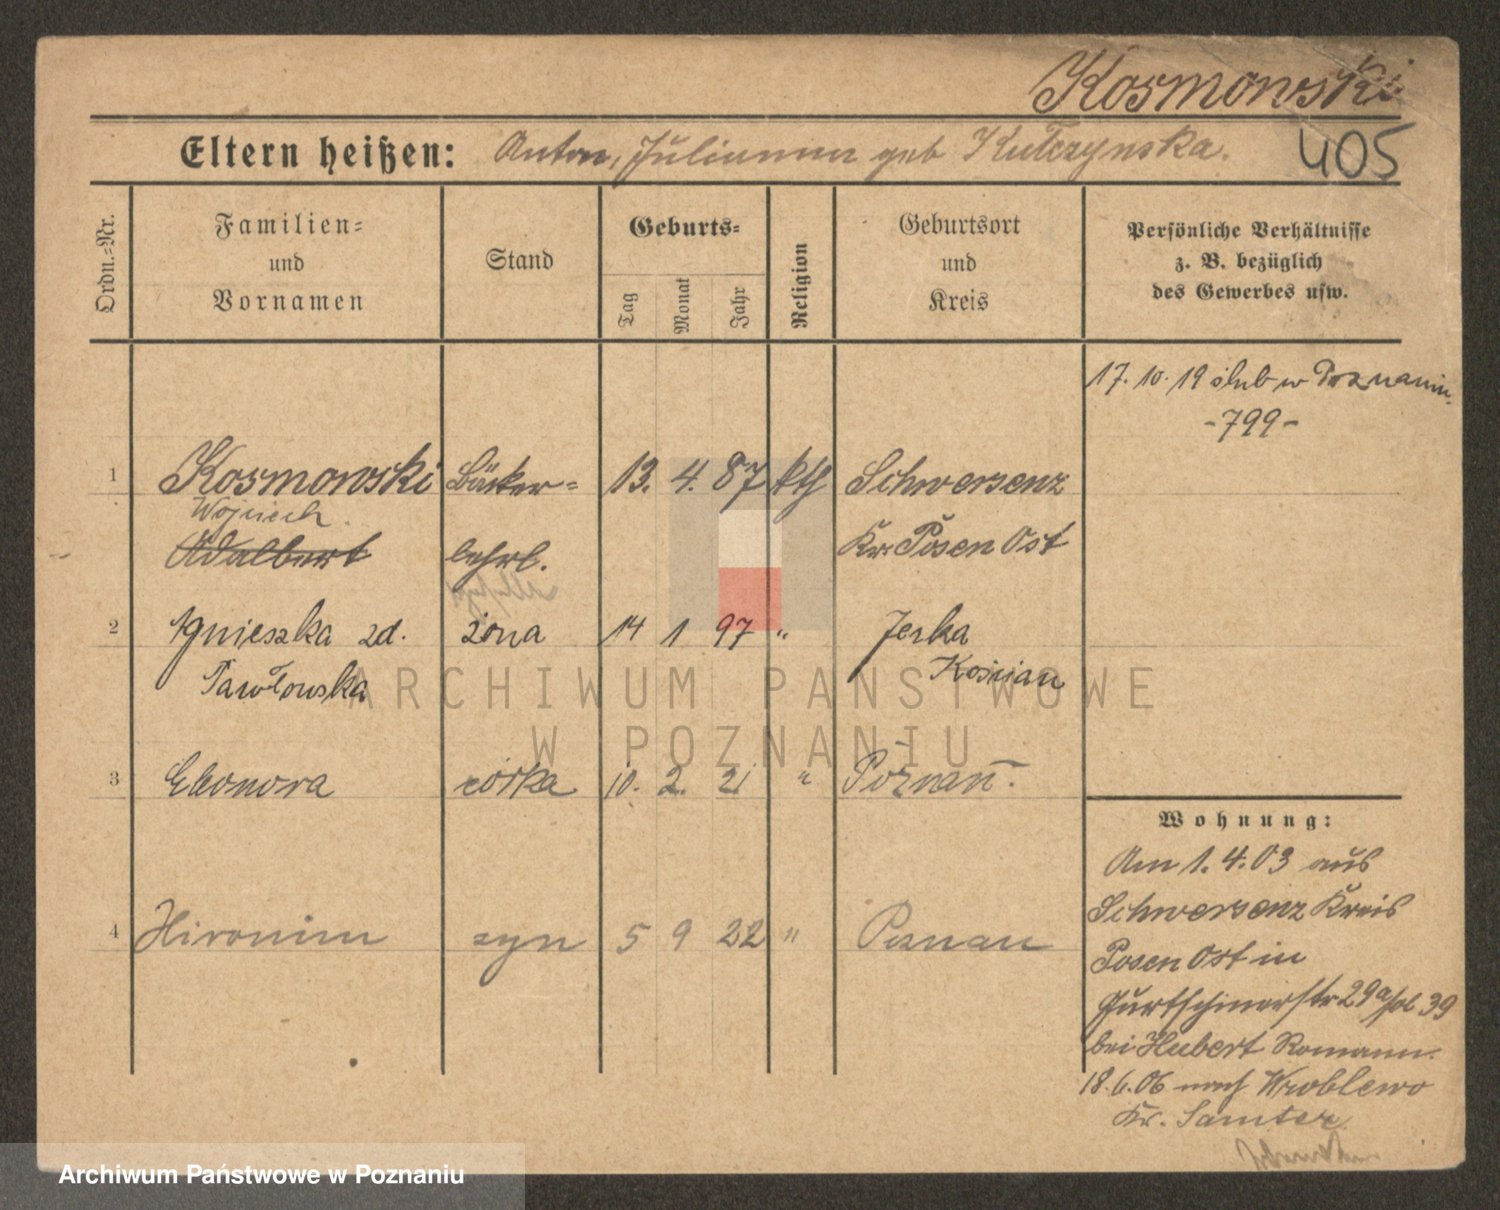 Kosmowski
405
Eltern heißen: Anton, Julianna geb Kulczynska.
Ordn.-Nr.
Familien-
und
Vornamen
Stand
Geburts-
Tag
Monat
Jahr
Religion
Geburtsort
und
Kreis
Persönliche Verhältnisse
z. B. bezüglich
des Gewerbes usw.
17. 10. 19 ślub w Poznaniu.
-799-
1 Kosmowski Bäcker= 13. 4. 87 kth Schwersenz
Wojciech
Adalbert lehrl. Kr. Posen Ost
2 Agnieszka zd. żona 14 1 97 " Jerka
Pawłowska Kościan
3 Eleonora córka 10. 2. 21 " Poznań.
4 Hironim syn 5 9 22 " Poznań
Wohnung:
Am 1. 4. 03 aus
Schwersenz Kreis
Posen Ost in
Gurtschinerstr 29a 39
bei Hubert Romann.
18. 6. 06 nach Wroblewo
Kr. Samter
ARCHIWUM PAŃSTWOWE
W POZNANIU
Archiwum Państwowe w Poznaniu